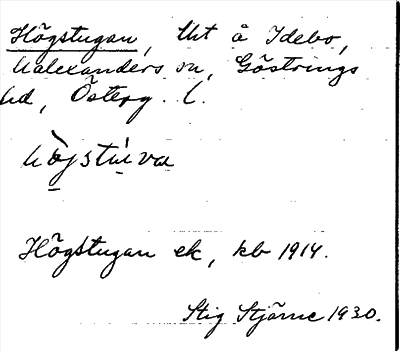 Högstugan, tht å Idebo,
V.alexanders sn, Göstrings
hd, Österg. l.
hö̀gstúva
Högstugan ek, kb 1914.
Stig Stjärne 1930.